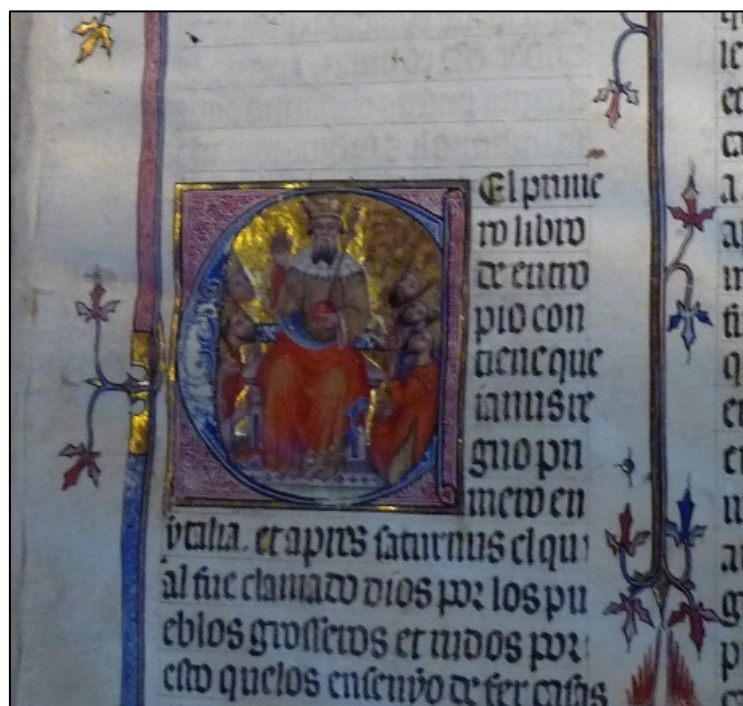 El prime
ro libro
de eutro
pio con
tiene que
ianus re
gno pri
mero en
ytalia. et apres saturnus el qu
al fue clamado dios por los pu
eblos grosseros et rudos por
esto quelos ensenyo de fer casas